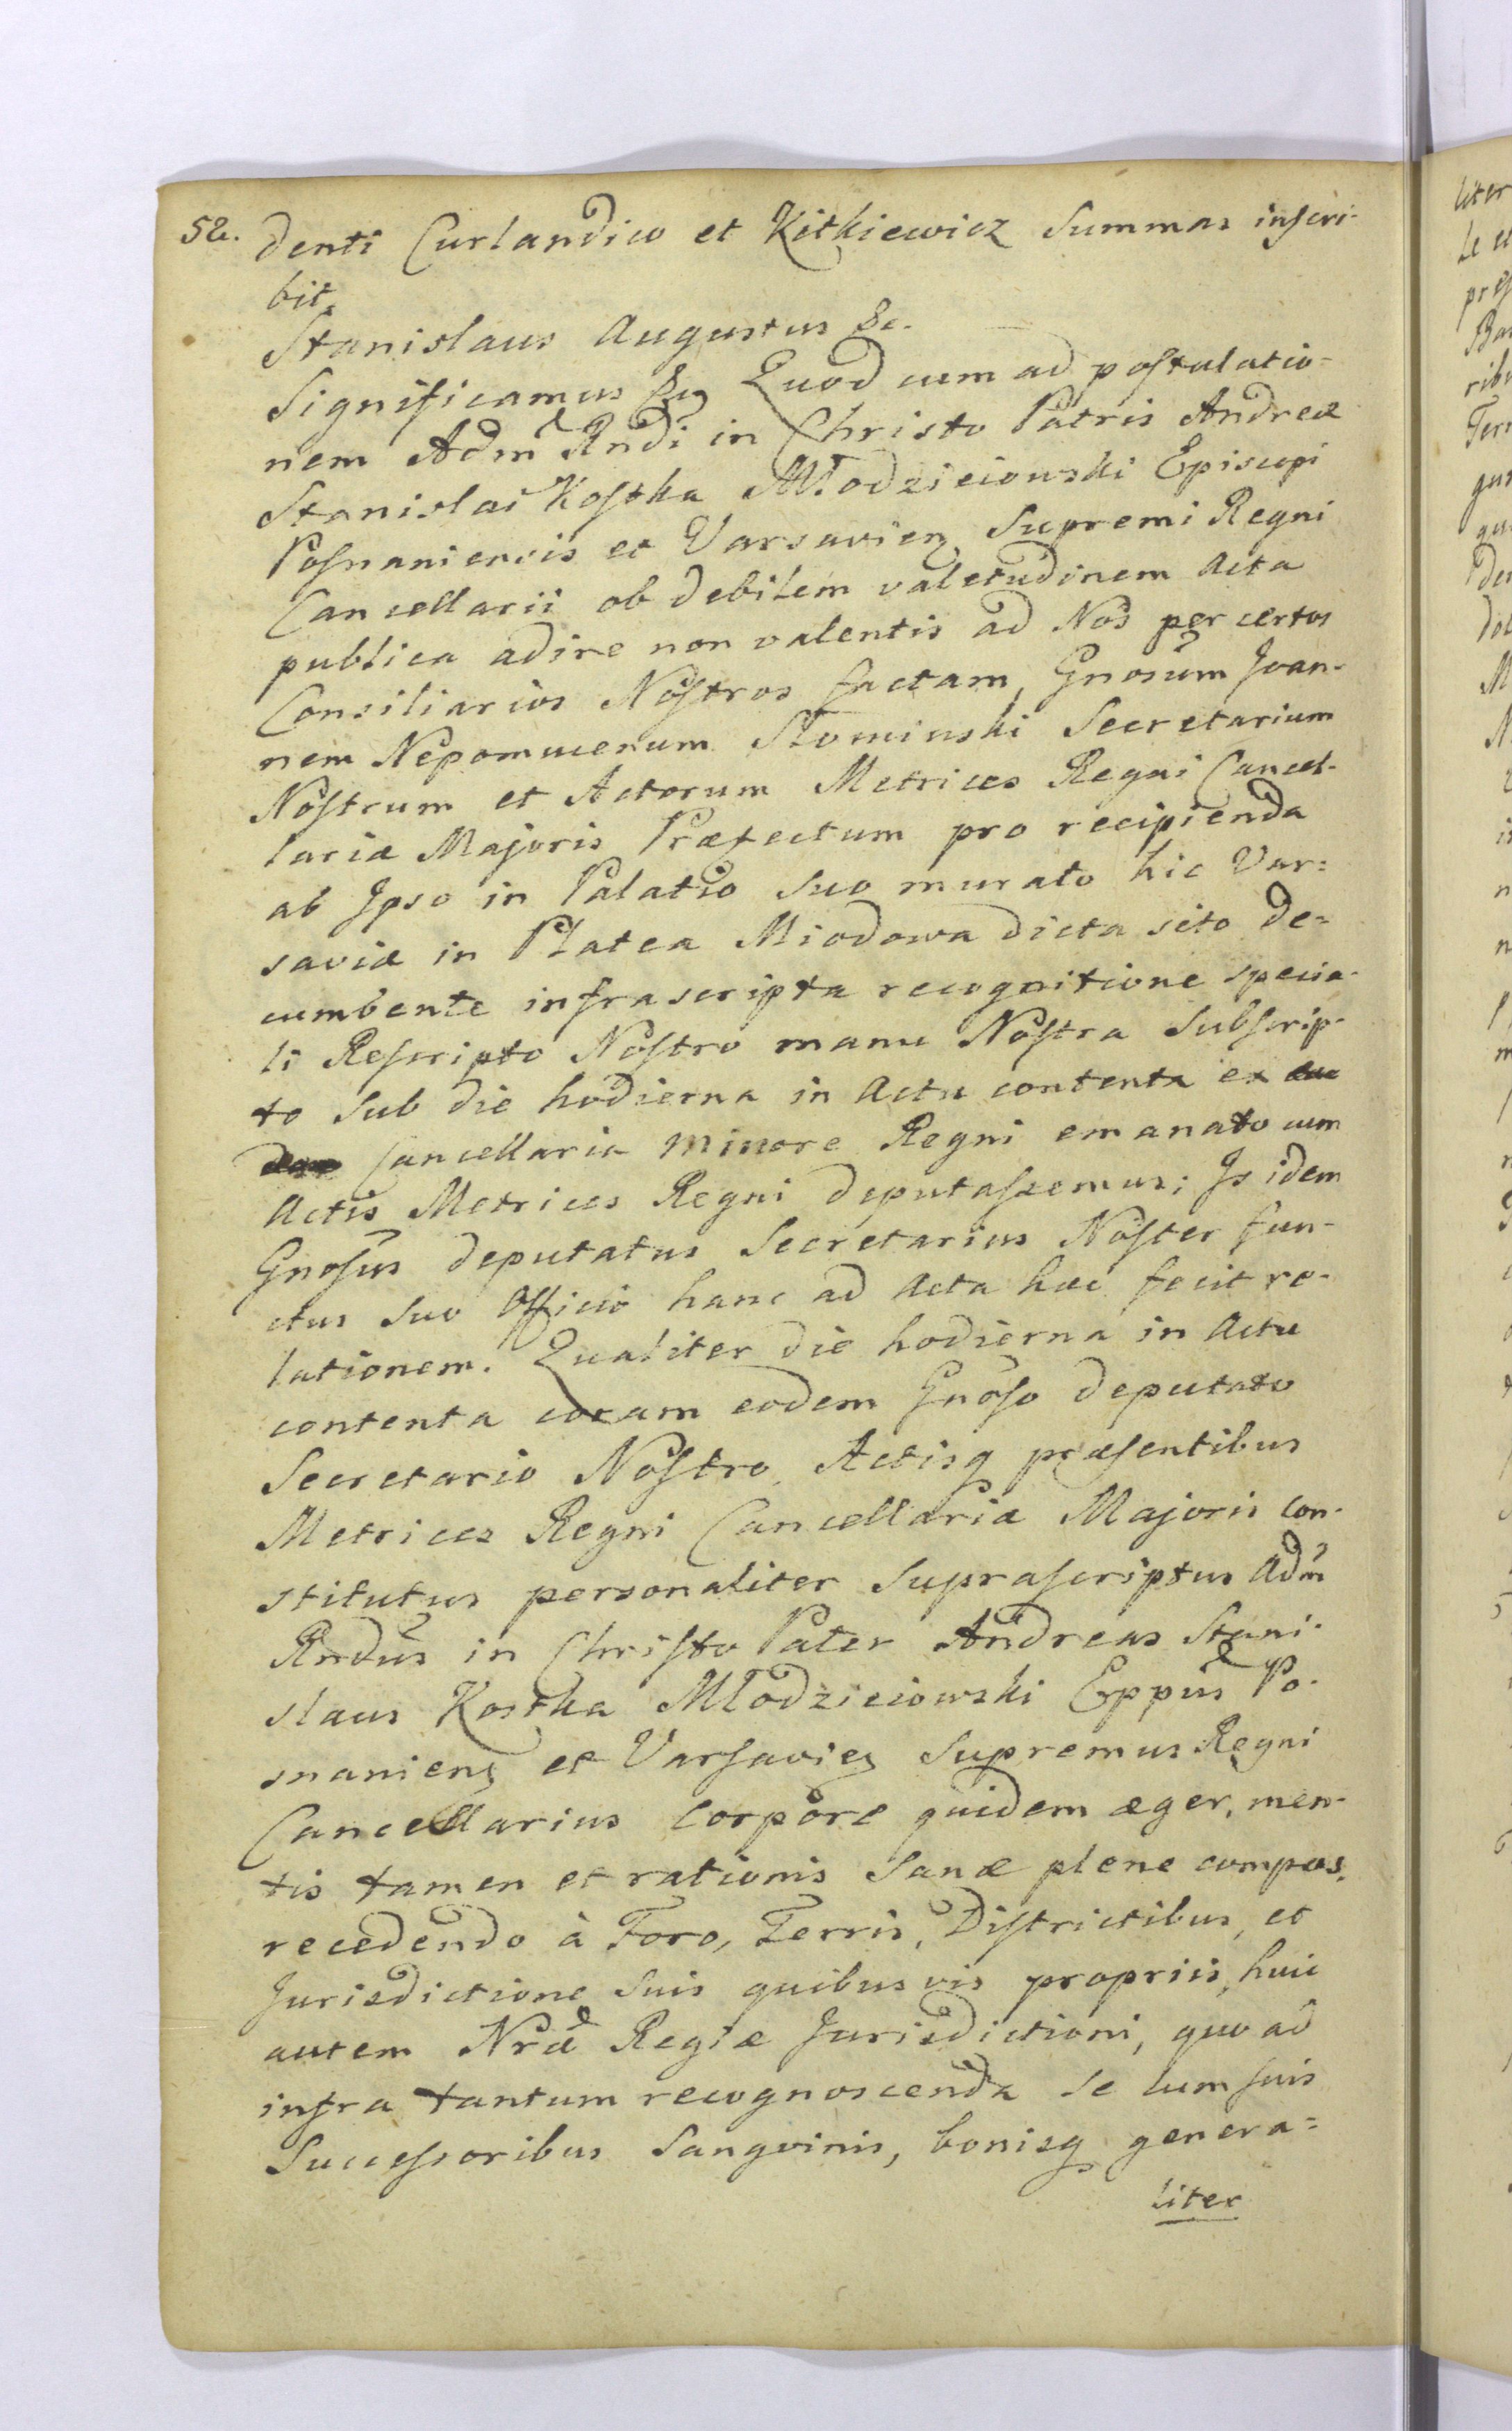 52.
denti Curlandico et Kitkiewicz Summas inscri-
bit.
Stanislaus Augustus &c.
Significamus &c Quod cum ad postulatio-
nem Adm Rndi in Christo Patris Andreæ
Stanislai Kostka Młodzieiowski Episcopi
Posnaniensis et Varsavien Supremi Regni
Cancellarii ob debilem valetudinem Acta
publica adire non valentis ad Nos per certos
Consiliarios Nostros factam, Gnosum Joan-
nem Nepomucenum Słominski Secretarium
Nostrum et Actorum Metrices Regni Cancel-
lariæ Majoris Præfectum pro recipienda
ab Ipso in Palatio suo murato hic Var=
saviæ in Platea Miodowa dicta sito de=
cumbente infrascripta recognitione specia-
li Rescripto Nostro manu Nostra Subscrip-
to sub die hodierna in Actu contenta ex
Cancellaria Minore Regni emanato cum
Actis Metrices Regni deputassemus; Is idem
Gnosus deputatus Secretarius Noster fun-
ctus suo Officio hanc ad Acta hæc fecit re-
lationem. Qualiter die hodierna in Actu
contenta coram eodem Gnoso deputato
Secretario Nostro, Actisq præsentibus
Metrices Regni Cancellariæ Majoris con-
stitutus personaliter Suprascriptus Adm
Rndus in Christo Pater Andreas Stani-
slaus Kostka Młodzieiowski Eppus Po-
snanien et Varsavien Supremus Regni
Cancellarius Corpore quidem æger, men-
tis tamen et rationis sanæ plene compos,
recedendo à Foro, Terris, Districtibus, et
Jurisdictione suis quibusvis propriis, huic
autem Nræ Regiæ Jurisdictioni, quo ad
infra tantum recognoscenda se cum suis
Successoribus Sangvinis, bonisq genera=
liter